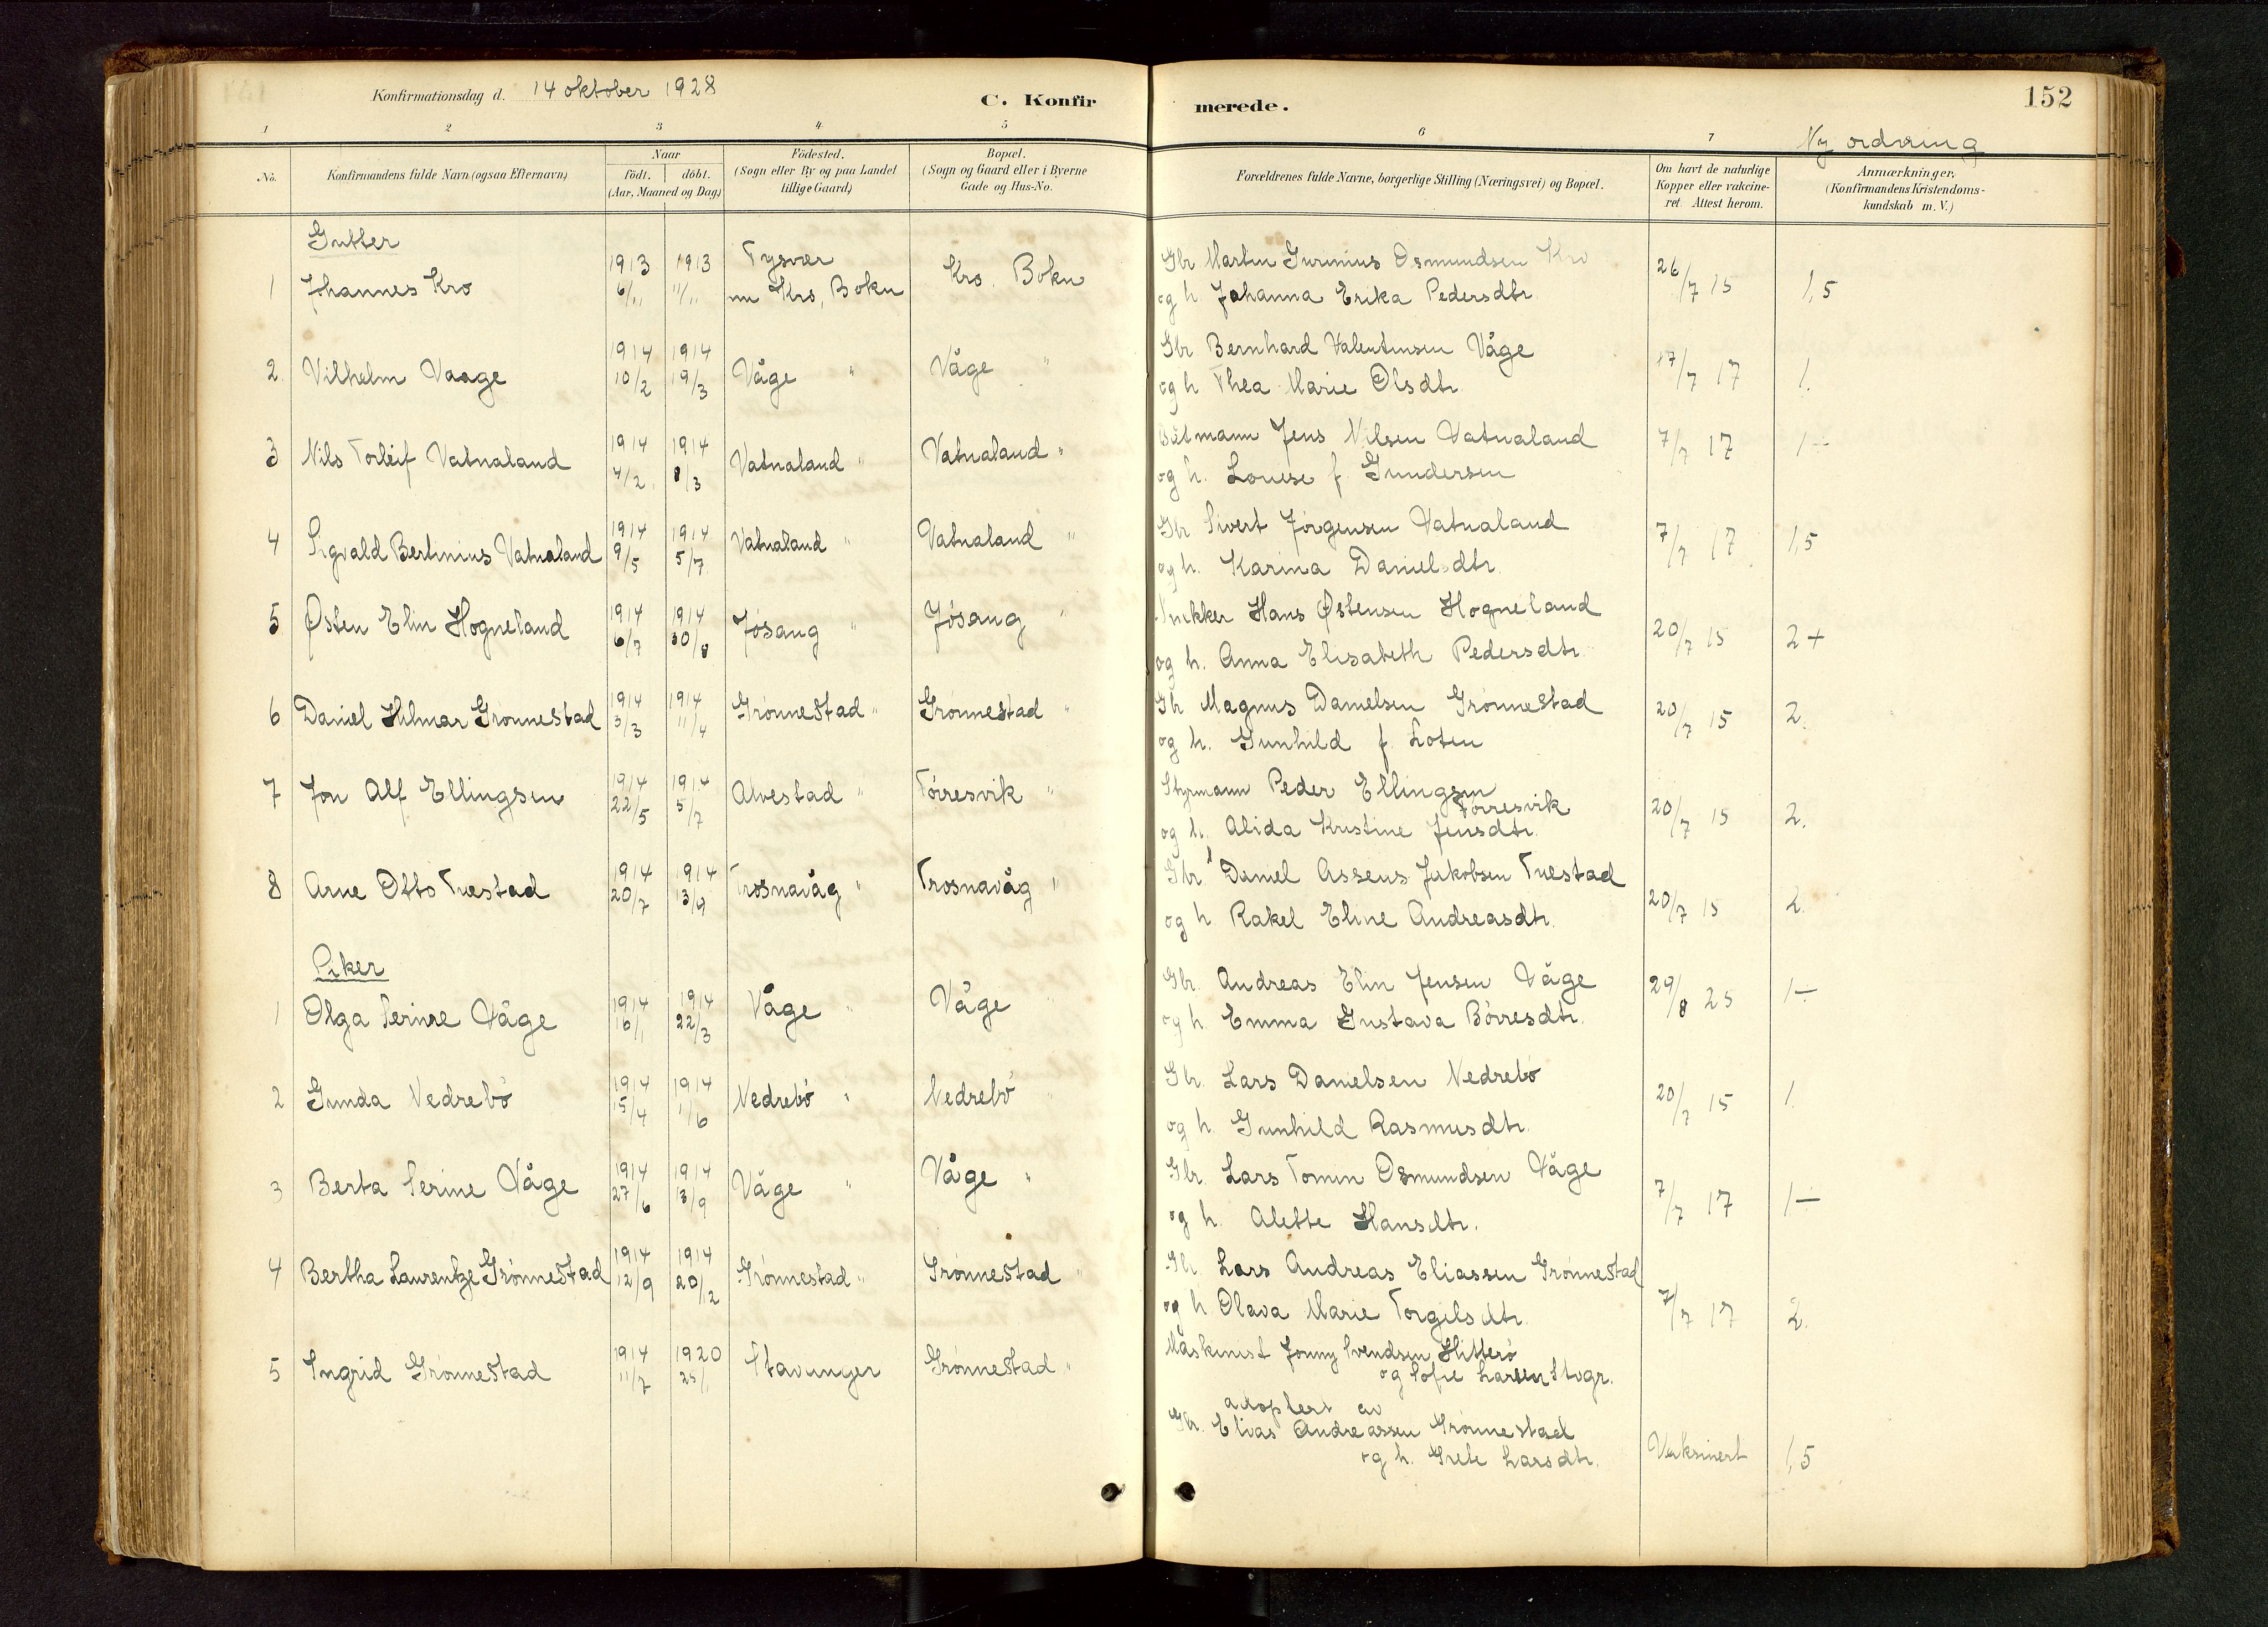 Konfirmationsdag d. 14 oktober 1928
C. Konfirmerede.
152
Ny ordning
1 2 3 4 5 6 7
No.
Konfirmandens fulde Navn (ogsaa Efternavn)
Naar
födt. döbt.
(Aar, Maaned og Dag)
Födested.
(Sogn eller By og paa Landet
tillige Gaard)
Bopæl.
(Sogn og Gaard eller i Byerne
Gade og Hus-No.
Forældrenes fulde Navne, borgerlige Stilling (Næringsvei) og Bopæl.
Om havt de naturlige
Kopper eller vakcine-
ret. Attest herom.
Anmærkninger,
(Konfirmandens Kristendoms-
kundskab m. V.)
Gutter
1 Johannes Kro 1913 6/11 1913 11/11 Tysvær nu Kro, Bokn Kro. Bokn Gbr Martin Gurinius Osmundsen Kro
og h. Johanna Erika Pedersdtr. 26/7 15 1,5
2. Vilhelm Vaage 1914 10/2 1914 19/3 Våge " Våge " Gbr Bernhard Valentinsen Våge
og h Thea Marie Olsdtr 17/7 17 1.
3 Nils Torleif Vatnaland 1914 4/2 1914 8/3 Vatnaland " Vatnaland " Jens Nilsen Vatnaland
og h. Lovise f. Gundersen 7/7 17 1-
4 Sigvald Bertinius Vatnaland 1914 9/5 1914 5/7 Vatnaland " Vatnaland " Gbr Sivert Jørgensen Vatnaland
og h. Karina Danielsdtr. 7/7 17 1,5
5 Østen Elin Hogneland 1914 6/7 1914 30/8 Jøsang " Jøsang " Snekker Hans Østensen Hogneland
og h. Anna Elisabeth Pedersdtr. 20/7 15 2+
6 Daniel Hilmar Grønnestad 1914 3/3 1914 11/4 Grønnestad " Grønnestad " Gbr Magnus Danielsen Grønnestad
og h. Gunhild f. Loten 20/7 15 2.
7 Jon Alf Ellingsen 1914 22/5 1914 5/7 Alvestad " Førresvik " Styrmann Peder Ellingsen
Førresvik
og h. Alida Kristine Jensdtr. 20/7 15 2.
8 Arne Otto Tuestad 1914 20/7 1914 13/9 Trosnavåg " Trosnavåg " Gbr Daniel Assens Jakobsen Tuestad
og h Rakel Eline Andreasdtr. 20/7 15 2.
Piker
1 Olga Serine Våge 1914 16/1 1914 22/3 Våge " Våge Gbr. Andreas Elin Jensen Våge
og h. Emma Gustava Børresdtr. 29/8 25 1-
2 Gunda Nedrebø 1914 15/4 1914 1/6 Nedrebø " Nedrebø " Gbr. Lars Danielsen Nedrebø
og h. Gunhild Rasmusdtr. 20/7 15 1.
3 Berta Serine Våge 1914 27/6 1914 13/9 Våge " Våge " Gbr. Lars Tomin Osmundsen Våge
og h. Alette Hansdtr. 7/7 17 1-
4 Bertha Laurentze Grønnestad 1914 12/9 1914 20/12 Grønnestad " Grønnestad " Gbr. Lars Andreas Eliassen Grønnestad
og h Olava Marie Torgilsdtr. 7/7 17 2.
5 Ingrid Grønnestad 1914 11/7 1920 25/1 Stavanger Grønnestad " Maskinist Jonny Svendsen Hitterø
og Sofie Larsen Stvgr.
adoptert av
Gbr. Elias Andreassen Grønnestad
og h. Grete Larsdtr. Vaksinert 1,5